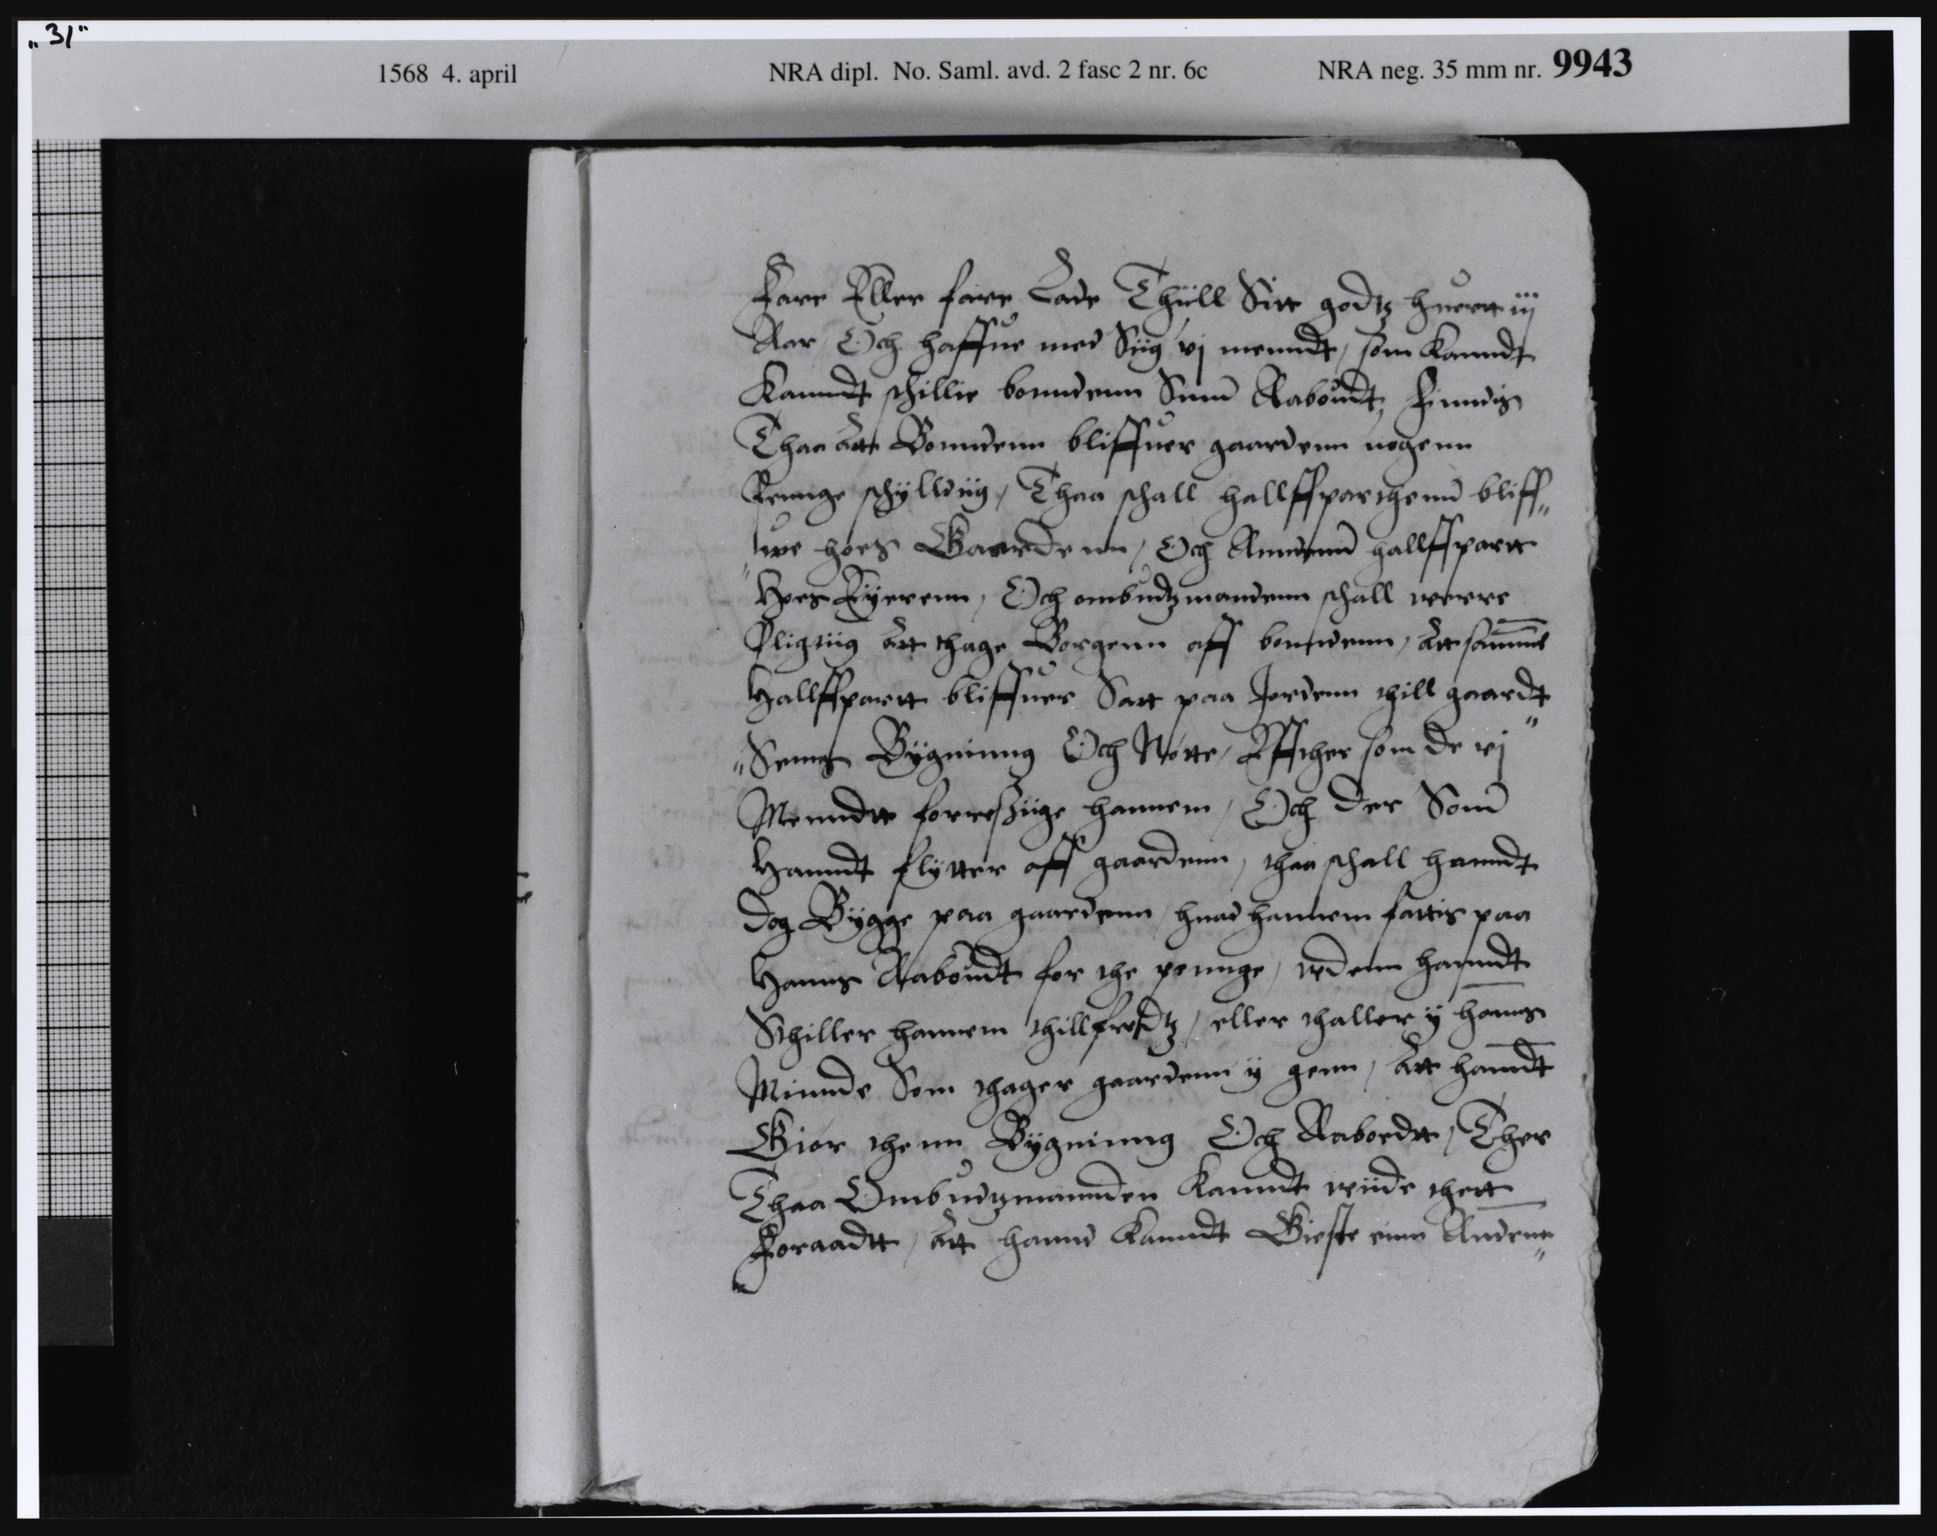 "31"
1568 4. april NRA dipl. No. Saml. avd. 2 fasc 2 nr. 6c NRA neg. 35 mm nr. 9943
Fare Eller fare Lade Thiill Sitt godtz huertt iij
Aar Och haffue med Siig vj menndt, som kanndt
Kanndt schillie bonndenn Sinn Aaboudt, Finndis
Thaa att Bonndenn bliffuer gaardenn nogenn
Pennge schylldiig, Thaa schall hallffparthenn bliff„
„we hoes Gaardenn, Och Anndenn hallffpartt
Hoes Eyerenn, Och ombudtzmandenn schall werre
Pligtiig Att thage Borgenn aff bonndenn, Att samme
Hallffpartt bliffuer Satt paa Jordenn thill gaardt
„Senns Bygninng Och Nøtte, Effther som de vj
Menndtt forreßiige hannem, Och der Som
Hanndt flytter aff gaardenn, thaa schall hanndt
Dog Bygge paa gaardenn, huad hannem fattis paa
Hanns Aaboudt for the pennge, vdenn hanndt
Sthiller hannem thillfredtz, eller thaller y hanns
Minnde Som thager gaardenn y genn, Att hanndt
Giør thenn Bygninng Och Aaboedtt, Ther
Thaa Ombudtzmannden kanndt wiide thett
Foraadtt, Att hannd kanndt Gieste enn Andenn„